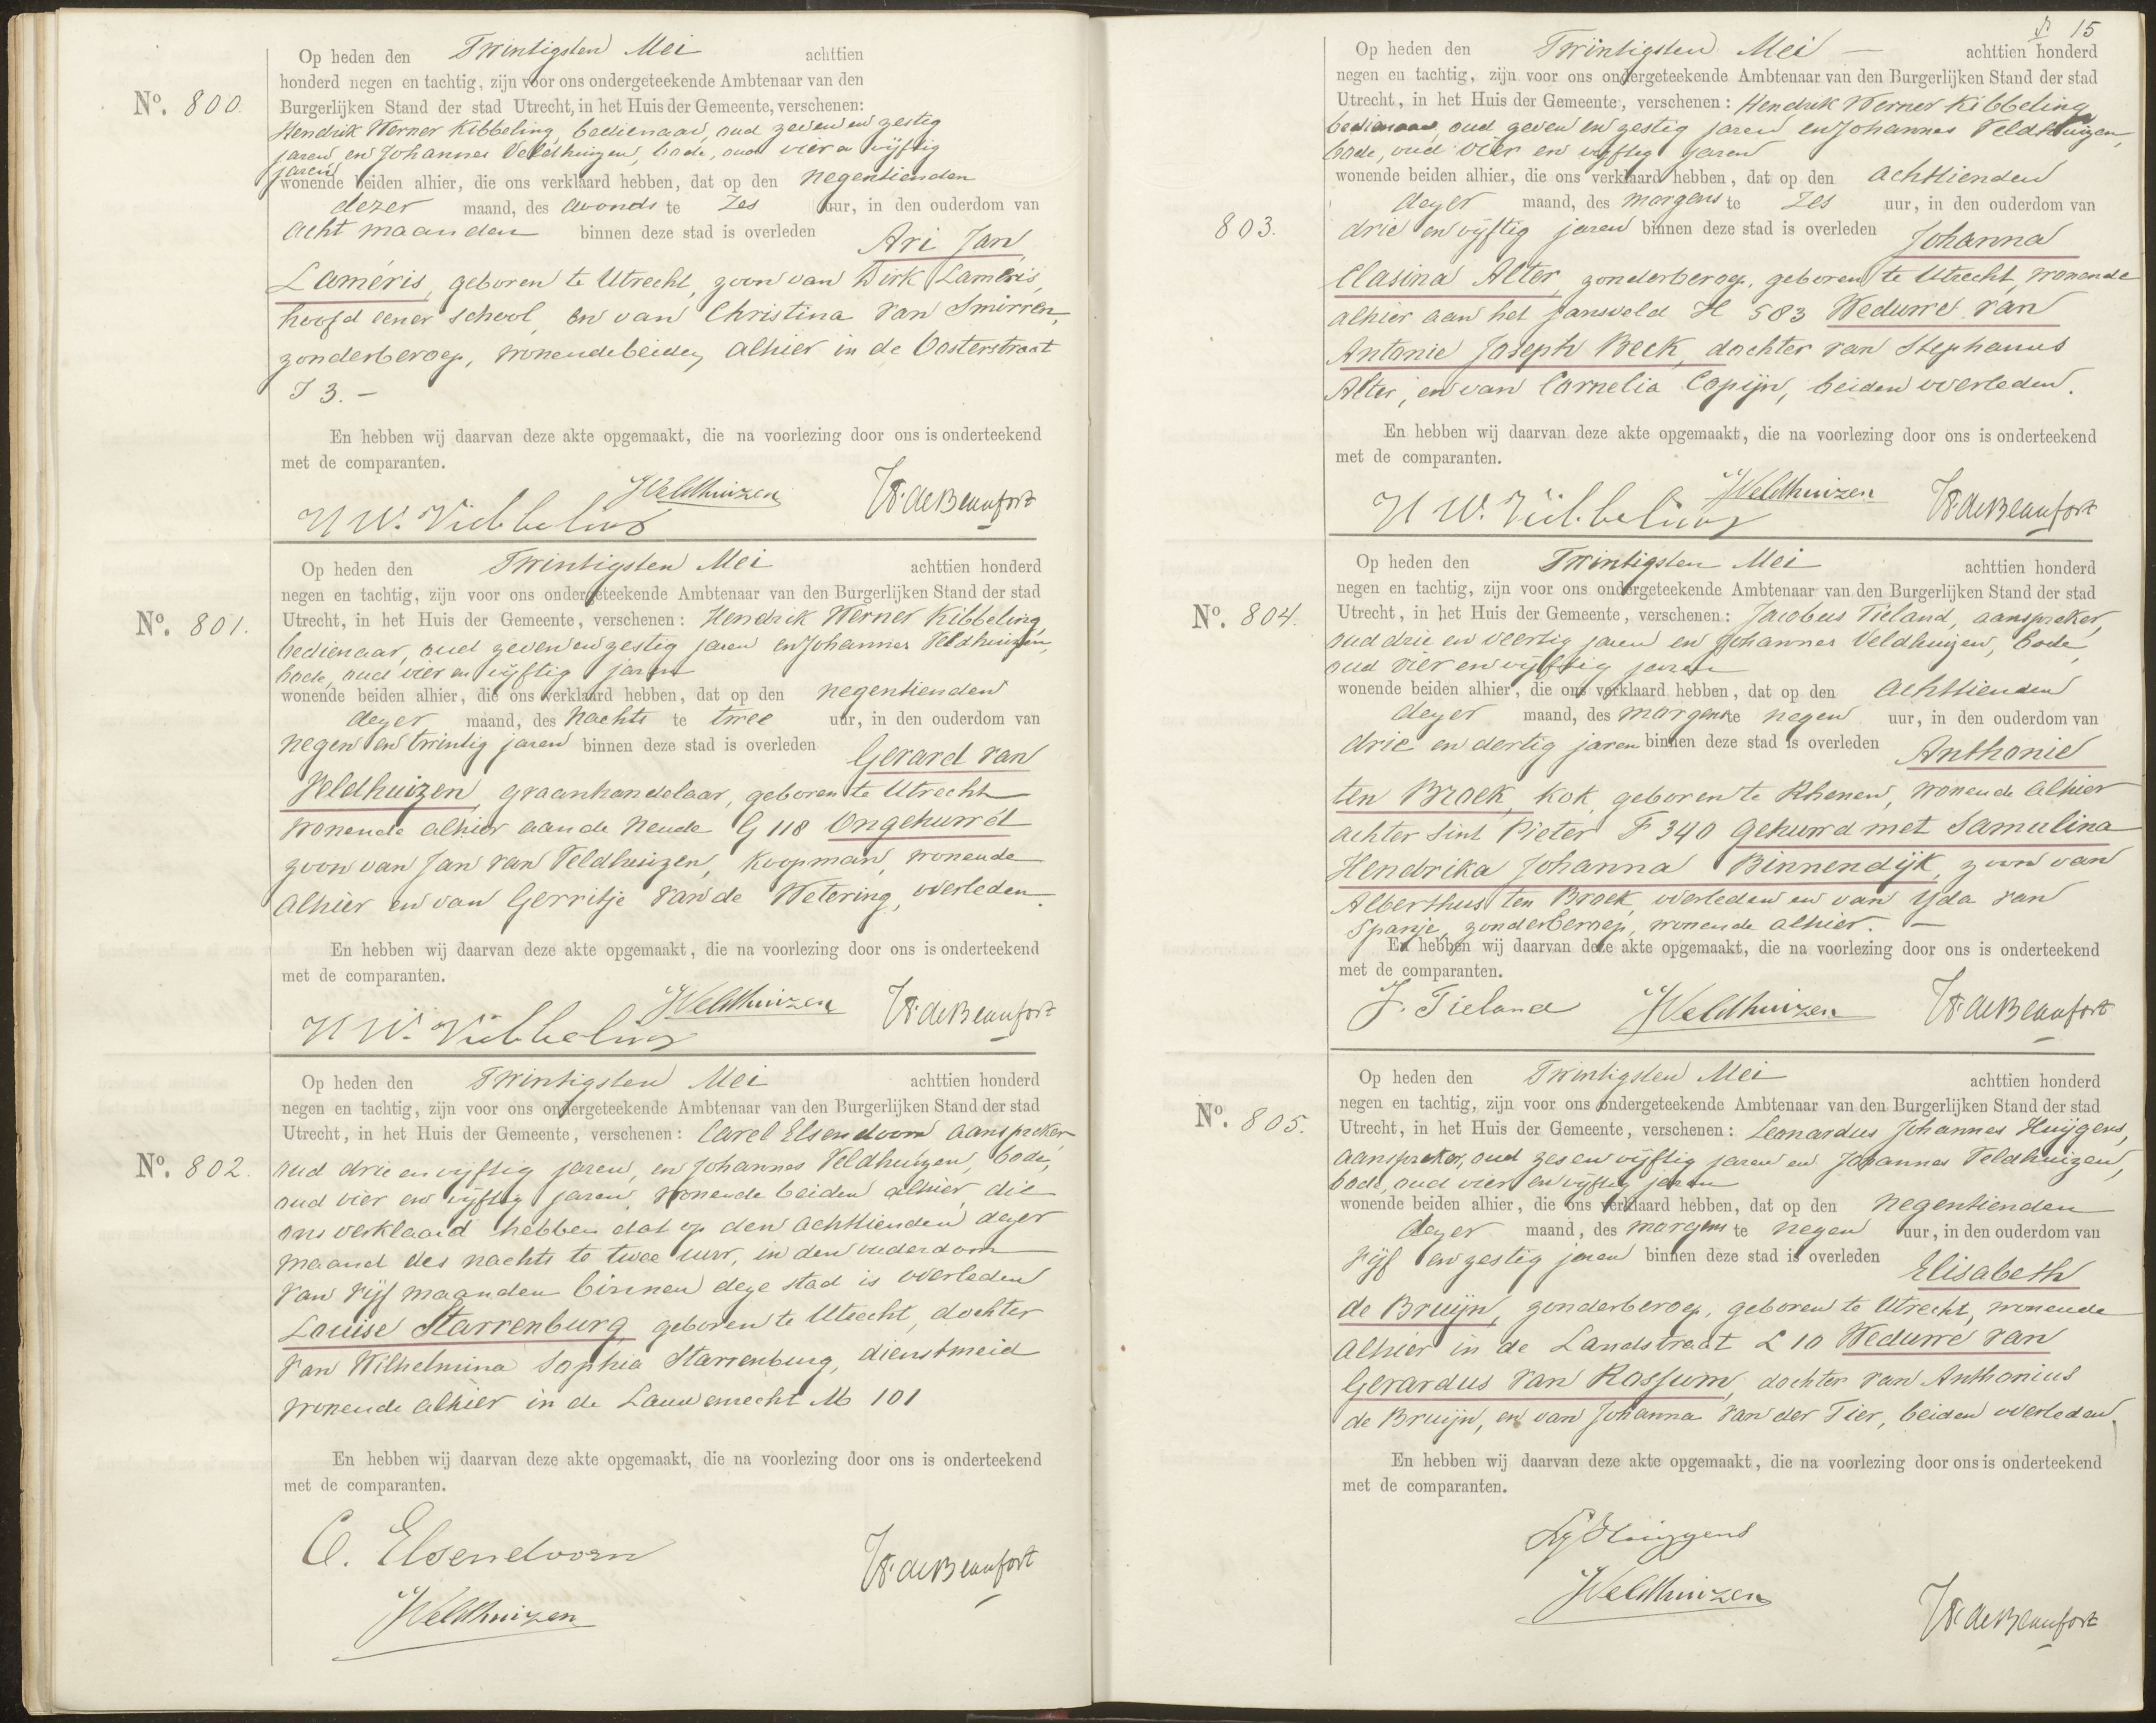 Op heden den Twintigsten Mei achttien
honderd negen en tachtig, zijn voor ons ondergeteekende Ambtenaar van den
Nº. 800. Burgerlijken Stand der stad Utrecht, in het Huis der Gemeente, verschenen:
Hendrik Werner Kibbeling, bedienaar, oud zeven en zestig
jaren, en Johannes Veldhuizen, bode, oud vier en vijftig
jaren
wonende beiden alhier, die ons verklaard hebben, dat op den negentienden
dezer maand, des avonds te zes uur, in den ouderdom van
acht maanden binnen deze stad is overleden Ari Jan
Laméris, geboren te Utrecht, zoon van Dirk Laméris,
hoofd eener school, en van Christina van Smirren,
zonder beroep, wonende beiden alhier in de Oosterstraat
I 3. –
En hebben wij daarvan deze akte opgemaakt, die na voorlezing door ons is onderteekend
met de comparanten.
H W. Kibbeling JVeldhuizen W. de Beaufort
Op heden den Twintigsten Mei achttien honderd
negen en tachtig, zijn voor ons ondergeteekende Ambtenaar van den Burgerlijken Stand der stad
Nº. 801. Utrecht, in het Huis der Gemeente, verschenen: Hendrik Werner Kibbeling,
bedienaar, oud zeven en zestig jaren en Johannes Veldhuizen,
bode, oud vier en vijftig jaren
wonende beiden alhier, die ons verklaard hebben, dat op den negentienden
dezer maand, des nachts te twee uur, in den ouderdom van
negen en twintig jaren binnen deze stad is overleden Gerard van
Veldhuizen, graanhandelaar, geboren te Utrecht
wonende alhier aan de Neude G 118 Ongehuwd
zoon van Jan van Veldhuizen, koopman, wonende
alhier en van Gerritje van de Wetering, overleden.
En hebben wij daarvan deze akte opgemaakt, die na voorlezing door ons is onderteekend
met de comparanten.
H W. Kibbeling JVeldhuizen W. de Beaufort
Op heden den Twintigsten Mei achttien honderd
negen en tachtig, zijn voor ons ondergeteekende Ambtenaar van den Burgerlijken Stand der stad
Utrecht, in het Huis der Gemeente, verschenen: Carel Elsendoorn aanspreker
Nº. 802. oud drie en vijftig jaren, en Johannes Veldhuizen, bode,
oud vier en vijftig jaren, wonende beiden alhier, die
ons verklaard hebben dat op den achttienden dezer
maand des nachts te twee uur, in den ouderdom
van vijf maanden binnen deze stad is overleden
Louise Starrenburg geboren te Utrecht, dochter
van Wilhelmina Sophia Starrenburg, dienstmeid
wonende alhier in de Lauwerecht M 101
En hebben wij daarvan deze akte opgemaakt, die na voorlezing door ons is onderteekend
met de comparanten.
C. Elsendoorn
JVeldhuizen W. de Beaufort
15
Op heden den Twintigsten Mei – achttien honderd
negen en tachtig, zijn voor ons ondergeteekende Ambtenaar van den Burgerlijken Stand der stad
Utrecht, in het Huis der Gemeente, verschenen: Hendrik Werner Kibbeling
bedienaar, oud zeven en zestig jaren en Johannes Veldhuizen,
bode, oud vier en vijftig jaren
wonende beiden alhier, die ons verklaard hebben, dat op den achttienden
dezer maand, des morgens te zes uur, in den ouderdom van
803. drie en vijftig jaren binnen deze stad is overleden Johanna
Clasina Alter, zonder beroep, geboren te Utrecht, wonende
alhier aan het Jansveld H 583 Weduwe van
Antonie Joseph Beck, dochter van Stephanus
Alter, en van Cornelia Copijn, beiden overleden.
En hebben wij daarvan deze akte opgemaakt, die na voorlezing door ons is onderteekend
met de comparanten.
H W. Kibbeling JVeldhuizen W. de Beaufort
Op heden den Twintigsten Mei achttien honderd
negen en tachtig, zijn voor ons ondergeteekende Ambtenaar van den Burgerlijken Stand der stad
Nº. 804. Utrecht, in het Huis der Gemeente, verschenen: Jacobus Tieland, aanspreker,
oud drie en veertig jaren en Johannes Veldhuizen, bode,
oud vier en vijftig jaren
wonende beiden alhier, die ons verklaard hebben, dat op den achttienden
dezer maand, des morgens te negen uur, in den ouderdom van
drie en dertig jaren binnen deze stad is overleden Anthonie
ten Broek, kok, geboren te Rhenen, wonende alhier
achter Sint Pieter F 340 gehuwd met Samulina
Hendrika Johanna Binnendijk, zoon van
Alberthus ten Broek, overleden en van Yda van
Spanje, zonder beroep, wonende alhier. –
En hebben wij daarvan deze akte opgemaakt, die na voorlezing door ons is onderteekend
met de comparanten.
J. Tieland JVeldhuizen W. de Beaufort
Op heden den Twintigsten Mei achttien honderd
negen en tachtig, zijn voor ons ondergeteekende Ambtenaar van den Burgerlijken Stand der stad
Nº. 805. Utrecht, in het Huis der Gemeente, verschenen: Leonardus Johannes Huijgens,
aanspreker, oud zes en vijftig jaren en Johannes Veldhuizen,
bode, oud vier en vijftig jaren
wonende beiden alhier, die ons verklaard hebben, dat op den negentienden
dezer maand, des morgens te negen uur, in den ouderdom van
vijf en zestig jaren binnen deze stad is overleden Elisabeth
de Bruijn, zonder beroep, geboren te Utrecht, wonende
alhier in de Landstraat L 10 Weduwe van
Gerardus van Rossum, dochter van Anthonius
de Bruijn, en van Johanna van der Tier, beiden overleden.
En hebben wij daarvan deze akte opgemaakt, die na voorlezing door ons is onderteekend
met de comparanten.
LJ Huijgens
JVeldhuizen
W. de Beaufort